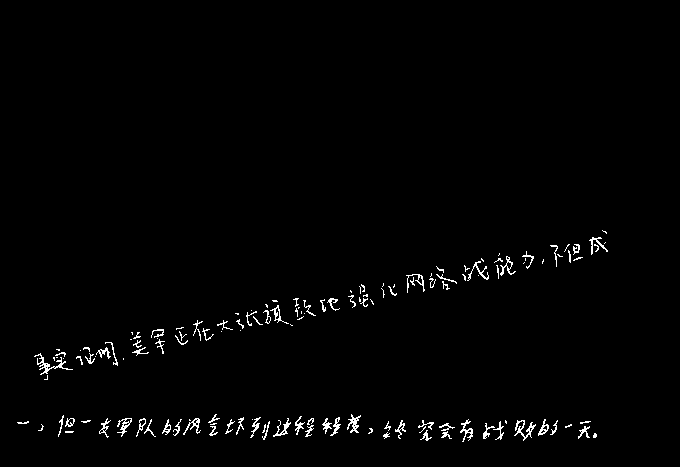 事实证明,美军正在大张旗鼓地强化网络战能力,不但成
一,但一支军队的风气坏到这程程度,终究会有战败的一天。